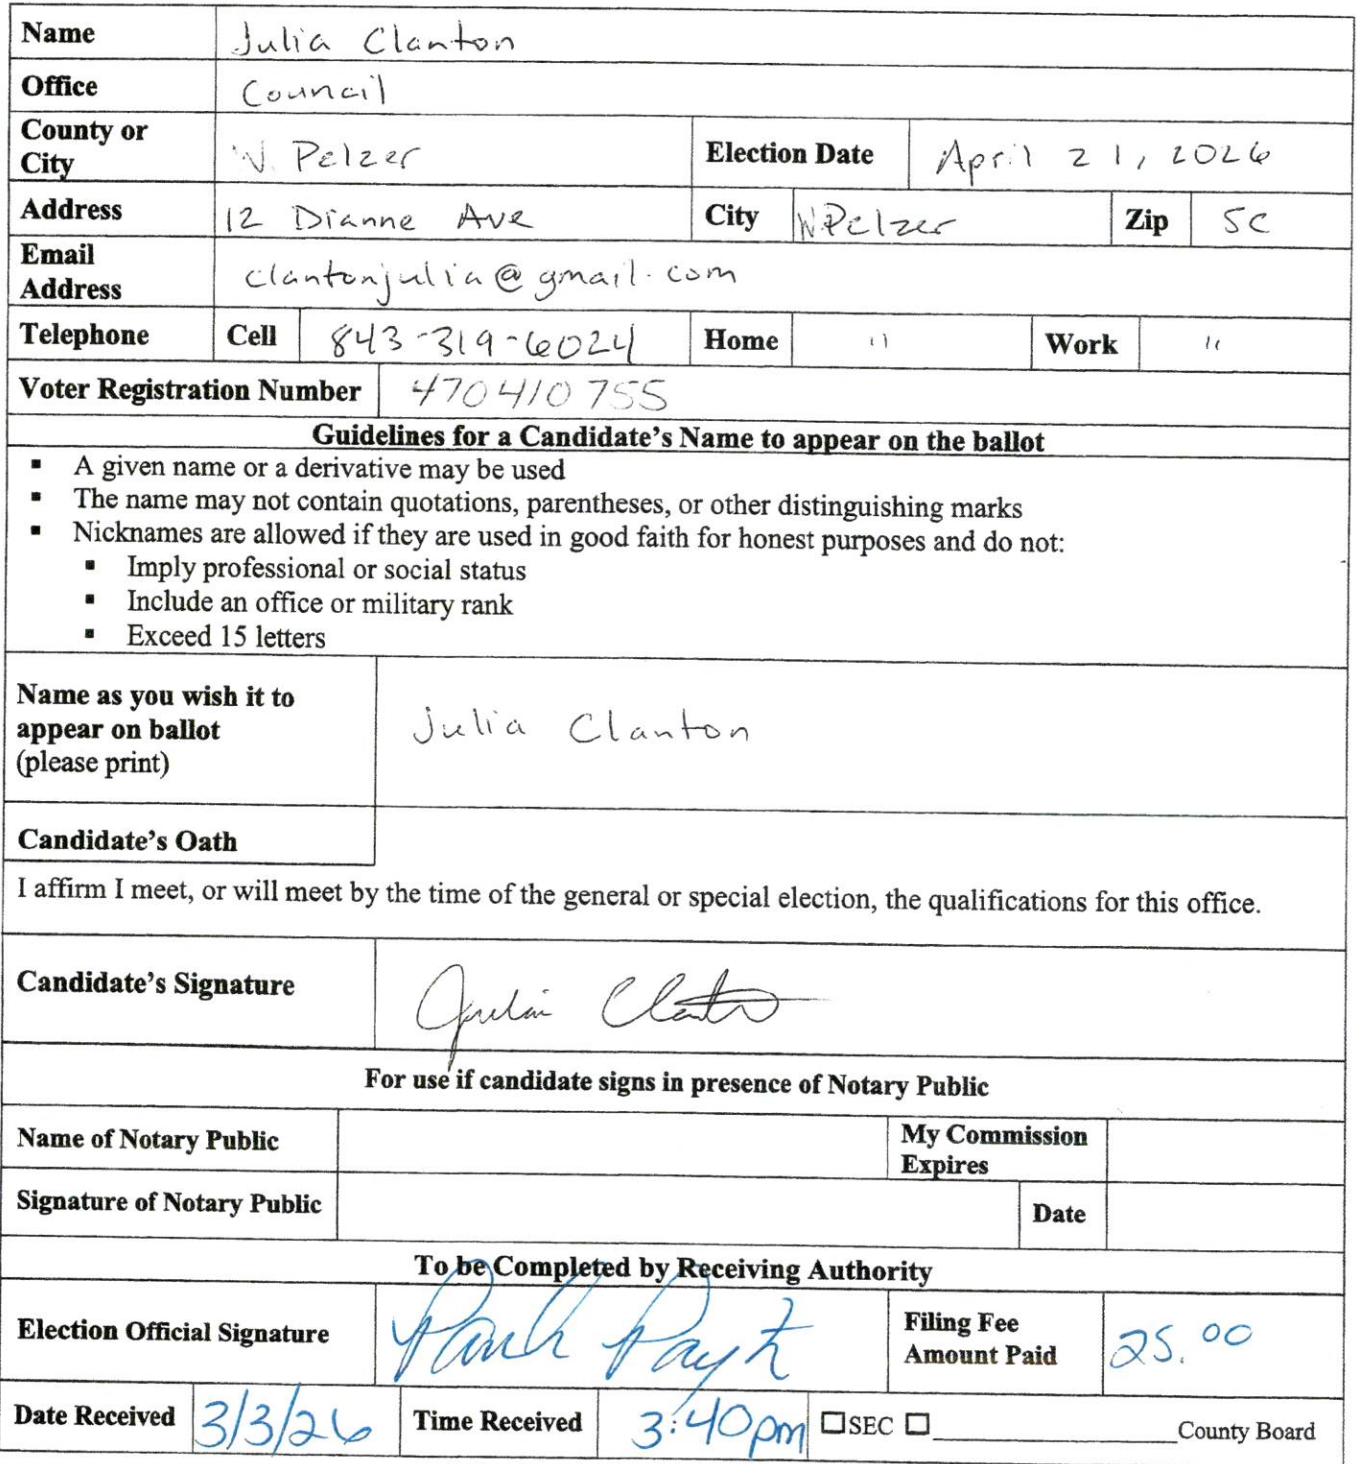 Name Julia Clanton
Office Council
County or City W. Pelzer Election Date April 21, 2026
Address 12 Dianne Ave City W. Pelzer Zip SC
Email Address clantonjulia@gmail.com
Telephone Cell 843-319-6024 Home " Work "
Voter Registration Number 470410755
Guidelines for a Candidate's Name to appear on the ballot
▪ A given name or a derivative may be used
▪ The name may not contain quotations, parentheses, or other distinguishing marks
▪ Nicknames are allowed if they are used in good faith for honest purposes and do not:
▪ Imply professional or social status
▪ Include an office or military rank
▪ Exceed 15 letters
Name as you wish it to
appear on ballot
(please print)
Julia Clanton
Candidate's Oath
I affirm I meet, or will meet by the time of the general or special election, the qualifications for this office.
Candidate's Signature Julia Clanton
For use if candidate signs in presence of Notary Public
Name of Notary Public My Commission Expires
Signature of Notary Public Date
To be Completed by Receiving Authority
Election Official Signature Filing Fee Amount Paid 25.00
Date Received 3/3/26 Time Received 3:40pm ☐SEC ☐ County Board